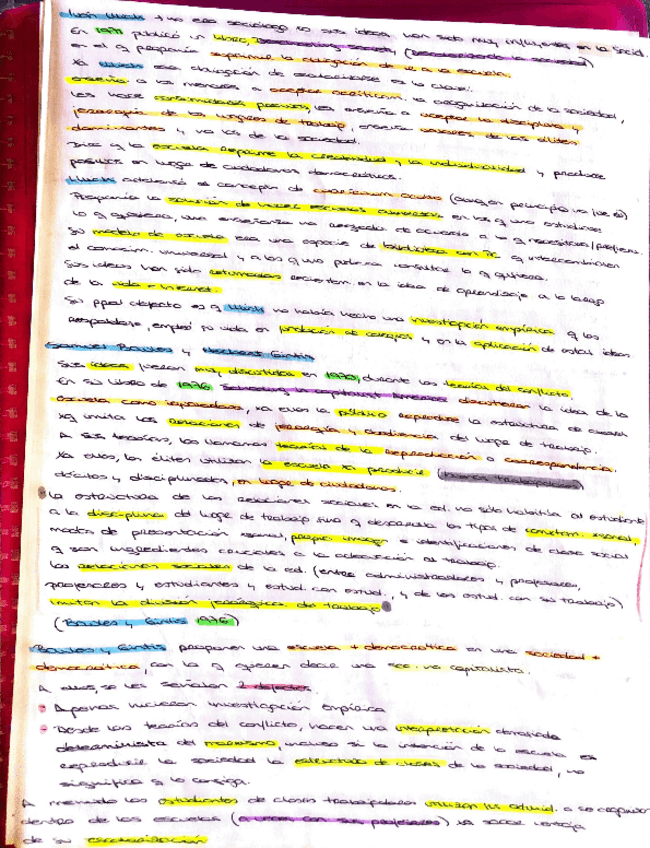 Iván Illich + no era sociólogo xo sus ideas han sido muy influyentes en la Sociol.
En 1971 publicó un libro, Deschooling society (Desescolarizando la sociedad)
en el q proponía suprimir la obligación de ir a la escuela.
Xa Illich esa obligación de
enseña a los menores a aceptar acríticam. la organización de la sociedad,
les hace consumidores pasivos, les enseña a aceptar la disciplina y
jerarquía de los lugares de trabajo, enseña valores de las élites
dominantes y no los de la sociedad.
Dice q la escuela reprime la creatividad y la individualidad y produce
pasivos en lugar de ciudadanos democráticos.
Illich el concepto de curriculum oculto (aunq en principio no fue él)
Proponía la solución de hacer escuelas en las q uno estudiase
lo q quisiera, una enseñanza no reglada de acuerdo a lo q necesitas/prefieres.
Su modelo de escuela era una especie de biblioteca con PC q intercambiasen
el conocim. universal y a los q uno pudiera consultar lo q quisiera.
Sus ideas han sido retomadas recientem. en la idea de aprendizaje a lo largo
de la vida + Internet.
Su ppal defecto es q Illich no había hecho una investigación empírica q las
respaldase, empleó su vida en y en la aplicación de estas ideas.
Samuel Bowles y Herbert Gintis
Sus ideas fueron muy discutidas en 1970, durante las teorías del conflicto.
En su libro de 1976 Schooling in capitalist America la idea de la
escuela como igualadora, xa ellos la reproduce la estructura de
xq imita las relaciones de jerarquía y obediencia del lugar de trabajo.
A sus teorías, los llamamos teoría de la reproducción o correspondencia.
Xa ellos, las élites utilizan la escuela xa producir (buenos trabajadores)
dóciles y disciplinados, en lugar de ciudadanos.
La estructura de las relaciones sociales en la ed. no sólo habitúa al estudiante
a la disciplina del lugar de trabajo sino q desarrolla los tipos de comportam. personal,
modos de presentación personal, propia imagen e identificaciones de clase social
q son ingredientes cruciales a la adecuación al trabajo.
Las relaciones sociales de la ed. (entre administradores y profesores,
profesores y estudiantes y estud. con estud., y de los estud. con su trabajo)
imitan la división jerárquica del trabajo
(Bowles y Gintis 1976)
Bowles y Gintis proponen una escuela + democrática en una sociedad +
democrática, con lo q quieren decir una soc. no capitalista.
A ellos, se les señalan 2 defectos.
- Apenas hicieron investigación empírica
- Desde las teorías del conflicto, hacen una interpretación demasiado
determinista del marxismo, incluso si la intención de la escuela es
reproducir la sociedad la estructura de clases de la sociedad, no
significa q lo consiga.
A menudo los estudiantes de clases trabajadoras utilizan
dentro de las escuelas (a veces con sus profesores) xa sacar ventaja
de su escolarización